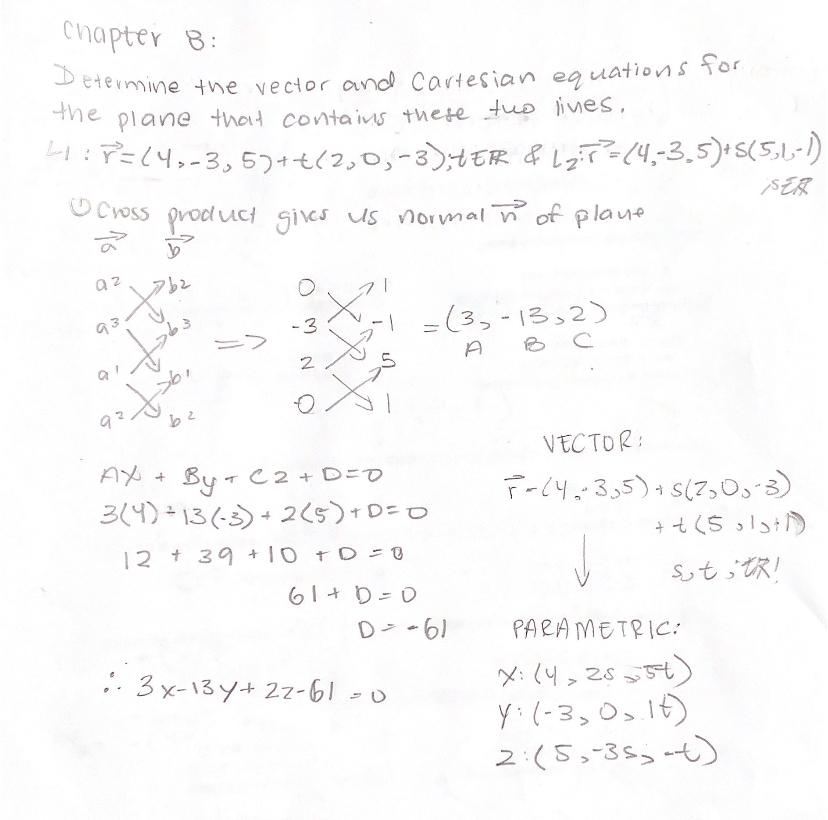 Chapter 8:
Determine the vector and Cartesian equations for
the plane that contains these two lines.
L1: r⃗=(4,-3,5)+t(2,0,-3),tεR & L2:r⃗=(4,-3,5)+s(5,1,-1)
,sεR
① Cross product gives us normal n⃗ of plane
a⃗ b⃗
a2 b2 0 1
a3 b3 => -3 -1 =(3,-13,2)
a1 b1 2 5 A B C
a2 b2 0 1
AX + By + Cz + D=0
3(4)-13(-3)+2(5)+D=0
12 + 39 + 10 + D = 0
61 + D = 0
D = -61
∴ 3x-13y+2z-61=0
VECTOR:
r⃗-(4,-3,5)+s(2,0,-3)
+t(5,1,+1)
s,t,εR!
↓
PARAMETRIC:
X:(4,2s,5t)
Y:(-3,0,1t)
Z:(5,-3s,-t)